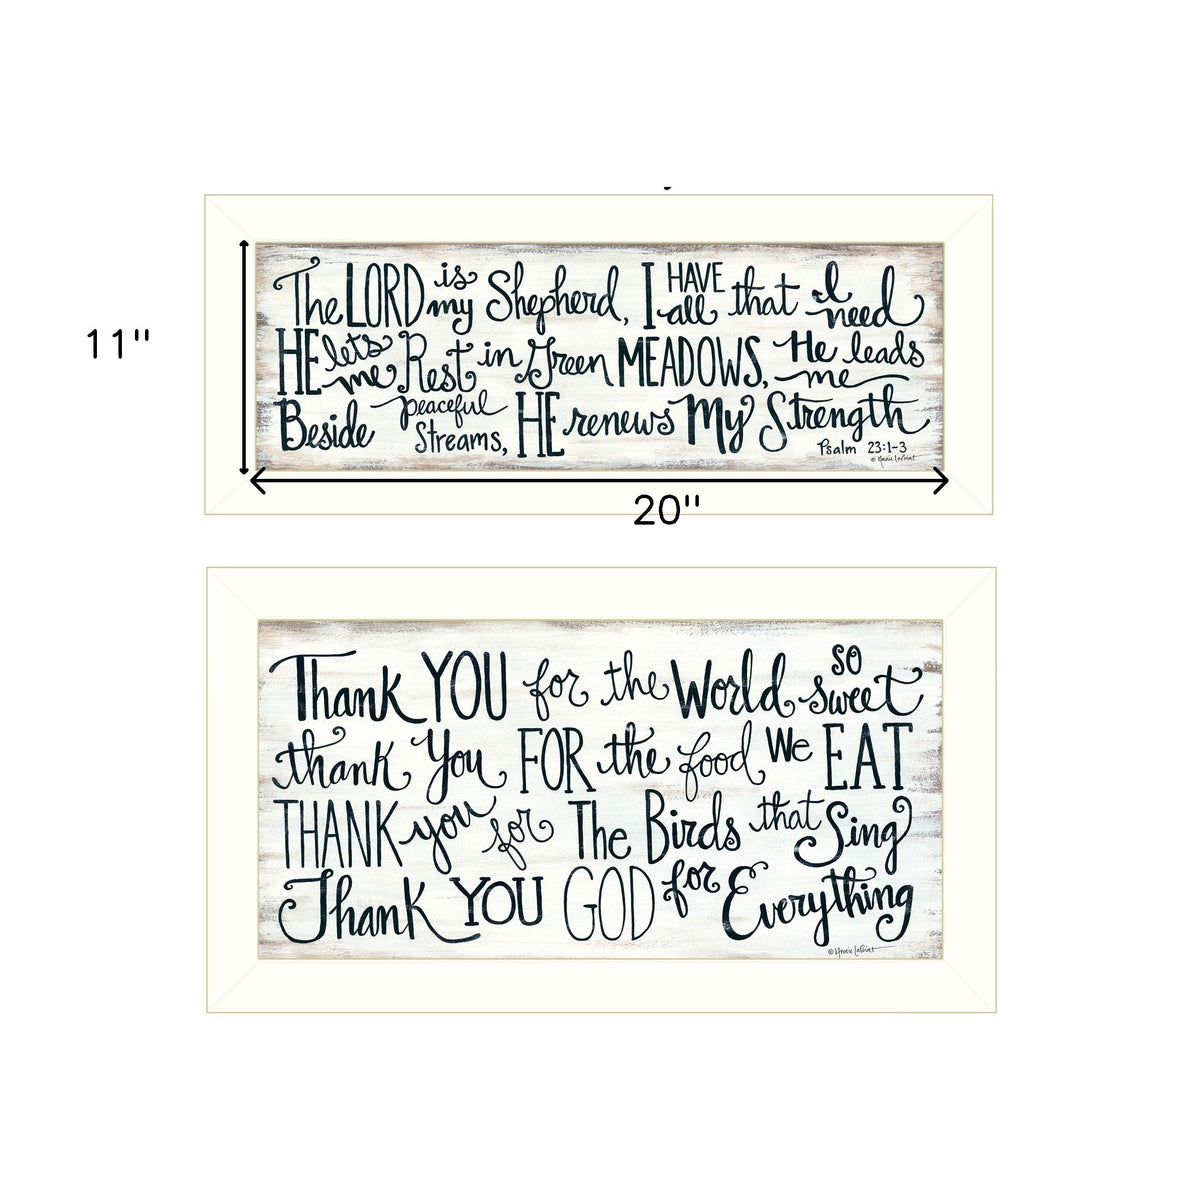 11"
The LORD is my Shepherd, I HAVE all that I need
HE lets me Rest in Green MEADOWS, He leads me
Beside peaceful streams, HE renews My Strength
Psalm 23:1-3
20"
Thank YOU for the World so sweet
thank You FOR the food We EAT
THANK you for The Birds that Sing
Thank YOU GOD for Everything